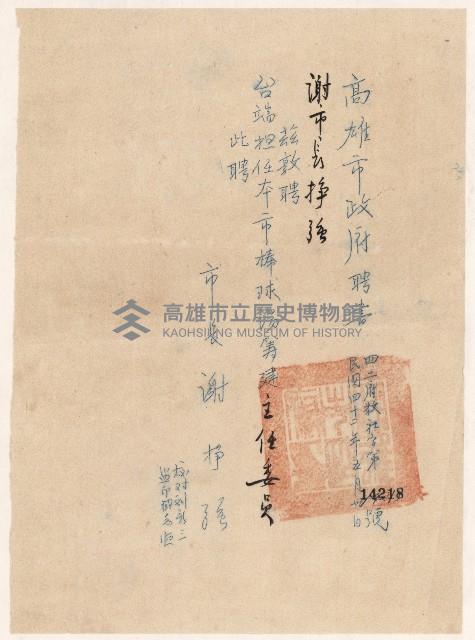 高雄市政府聘書
四二府教社字第14218號
民國四十二年五月 日
謝市長掙強
茲敦聘
台端担任本市棒球場籌建主任委員
此聘
市長 謝掙強
校对刘
監印
高雄市立歷史博物館
KAOHSIUNG MUSEUM OF HISTORY